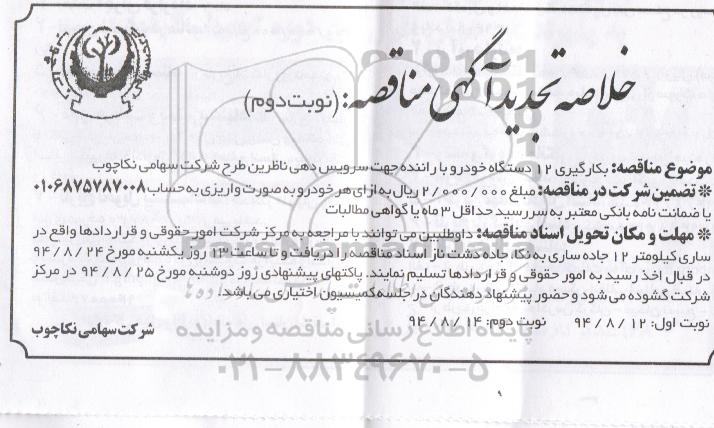 خلاصه تجدید آگهی مناقصه: (نوبت دوم)
موضوع مناقصه: بکارگیری ۱۲ دستگاه خودرو با راننده جهت سرویس دهی ناظرین طرح شرکت سهامی نکاچوب
❊ تضمین شرکت در مناقصه: مبلغ ۲/۰۰۰/۰۰۰ ریال به ازای هر خودرو به صورت واریزی به حساب ۰۱۰۶۸۷۵۷۸۷۰۰۸
یا ضمانت نامه بانکی معتبر به سررسید حداقل ۳ ماه یا گواهی مطالبات
❊ مهلت و مکان تحویل اسناد مناقصه: داوطلبین می توانند با مراجعه به مرکز شرکت امور حقوقی و قراردادها واقع در
ساری کیلومتر ۱۲ جاده ساری به نکا، جاده دشت ناز اسناد مناقصه را دریافت و تا ساعت ۱۳ روز یکشنبه مورخ ۹۴/۸/۲۴
در قبال اخذ رسید به امور حقوقی و قراردادها تسلیم نمایند. پاکتهای پیشنهادی روز دوشنبه مورخ ۹۴/۸/۲۵ در مرکز
شرکت گشوده می شود و حضور پیشنهاد دهندگان در جلسه کمیسیون اختیاری می باشد.
نوبت اول: ۹۴/۸/۱۲ نوبت دوم: ۹۴/۸/۱۴
شرکت سهامی نکاچوب
ParsNamadData
پایگاه اطلاع رسانی مناقصه و مزایده
۰۲۱-۸۸۳۴۹۶۷۰-۵
۹